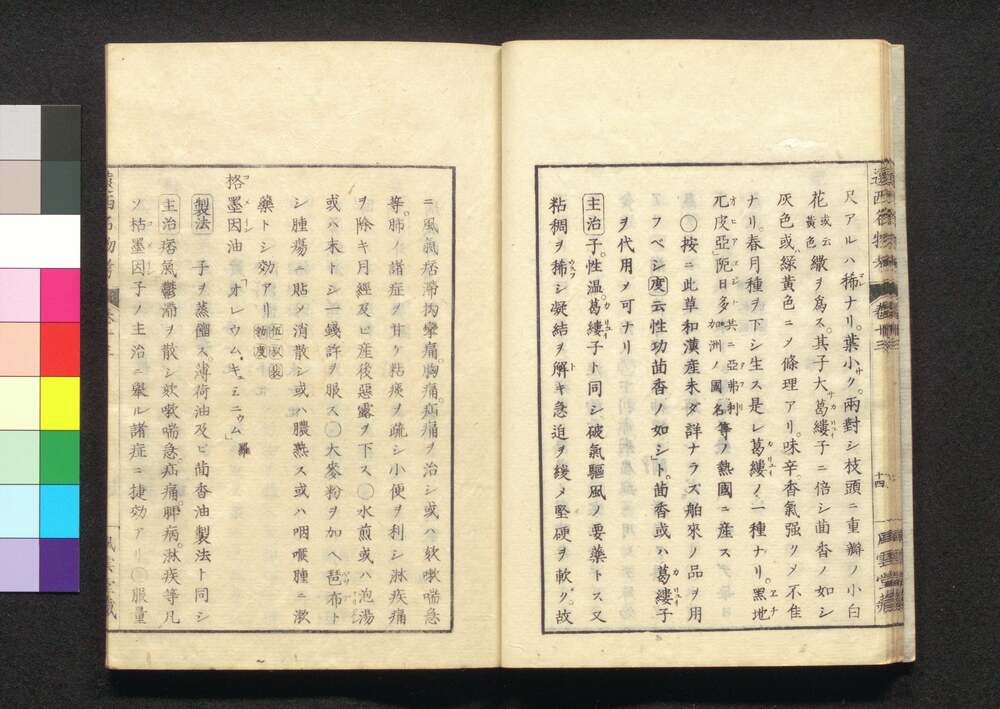 尺アルハ稀ナリ。葉小ク。兩對シ枝頭ニ重瓣ノ小白
花 或云黃色 繖ヲ為ス。其子大葛縷子ニ倍シ茴香ノ如シ
灰色或ハ綠黃色ニ〆條理アリ。味辛。香氣强ク〆不隹
ナリ。春月種ヲ下シ生ス是レ葛縷ノ一種ナリ。黑地
兀皮亞」阨日多 共ニ亞弗利加洲ノ國名 等ノ熱國ニ産ス
〇按ニ此草和漢産未ダ詳ナラズ舶來ノ品ヲ用
フベシ 度 云性功茴香ノ如シト。茴香或ハ葛縷子
ヲ代用〆可ナリ
主治 子。性温。葛縷子ト同シ破氣驅風ノ要藥トス又
粘稠ヲ稀シ凝結ヲ解キ急迫ヲ緩メ堅硬ヲ軟ク。故
十四
ニ風氣痞滯拘攣痛。胸痛。疝痛ヲ治シ或ハ欬嗽喘急
等。肺ノ諸症ヲ甘ケ粘痰ヲ疏シ小便ヲ利シ淋疾痛
ヲ除キ月經及ビ産後惡露ヲ下ス〇水煎或ハ泡湯
或ハ末トシ一錢許ヲ服ス〇大麥粉ヲ加ヘ琶布ト
シ腫瘍ニ貼ソ消散シ或ハ膿熟ス或ハ咽喉腫ニ漱
藥トシ効アリ
格墨因油 「オレウム・キュミニウム」 羅
製法 子ヲ蒸餾ス。薄荷油及ビ茴香油製法ト同シ
主治 痞氣鬱滯ヲ散シ欬嗽喘急。疝痛。肺病。淋疾等凡
ソ枯墨因子ノ主治ニ擧ル諸症ニ捷効アリ〇服量